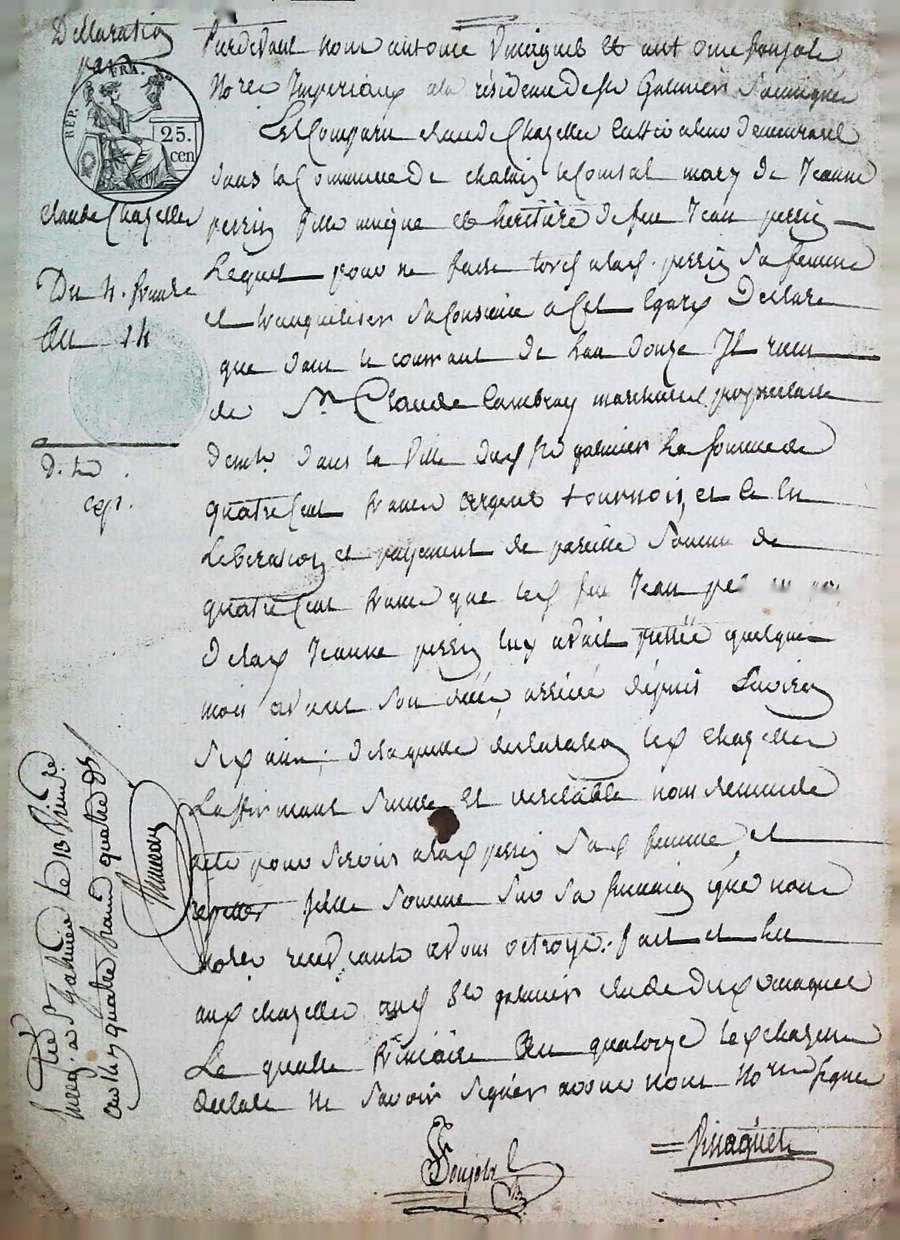 Déclaration
par
REP. FRA.
25.
cen
claude Chazelles
Du 4. frimre
An 14
D. té
exp.
Pardevant nous antoine Vinaguet et antoine
Nores Imperiaux ala résidence de st Galmier Soussignés
Est Comparu claude Chazelles Cultivateur Demeurant
dans la Commune De chalain le Comtal mary de Jeanne
perrin fille unique et héritière de feu Jean perrin
Lequel pour ne faire tord alad. perrin Sa femme
et tranquiliser Sa Consience a Cet Egard Declare
que dans le courrant de Lan douze Il reçu
de Sr Claude Cambray marchand propriétaire
demt. dans la Ville dud. st galmier La somme de
quatre Cent francs argent tournois, et ce En
Libération et payement de pareille Somme de
quatre Cent francs que led. feu Jean
de lad. Jeanne perrin luy avait prettée quelques
mois avant Son décès, arrivée dépuis Environ
Six ans; de laquelle declaration led. chazelles
L'affirmant Sincere Et véritable nous demande
acte pour Servir alad. perrin Sad. femme, et
repetter pelle Somme Sur Sa que nous
Nores avons octroyé. fait et Lu
aux chazelles aud. St galmier Etude dud. Vinaguet
Le quatre frimaire An quatorze led. chazelles
declaré ne Savoir Signer avons nous Nores Signé
Vinaguet
Enreg. a St Galmier le 13 frimre
an 14 quatre francs quatre ds